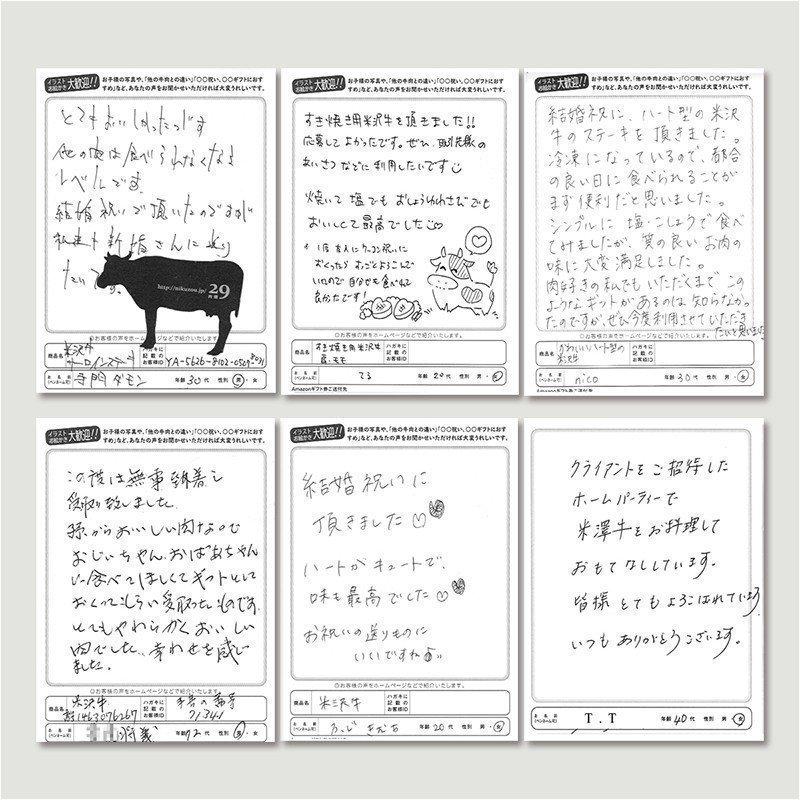 イラスト
お絵かき
大歓迎!!
お子様の写真や、「他の牛肉との違い」「〇〇祝い、〇〇ギフトにおす
すめ」など、あなたの声をお聞かせいただければ大変うれしいです。
とてもおいしかったです
他の肉は食べられなくなる
レベルです。
結婚祝いで頂いたのですが
私達も新婚さんに送り
たいです。
http://nikuzou.jp/
29
◎お客様の声をホームページなどで紹介いたします。
商品名
米沢牛
サーロインステーキ
ハガキに
記載の
お客様ID
YA-5626-8102-0569-8031
お名前
(ペンネーム可)
寺門ダモン
年齢 30代 性別 男・女
イラスト
お絵かき
大歓迎!!
お子様の写真や、「他の牛肉との違い」「〇〇祝い、〇〇ギフトにおす
すめ」など、あなたの声をお聞かせいただければ大変うれしいです。
すき焼き用米沢牛を頂きました!!
応募してよかったです。ぜひ、取引先様の
あいさつなどに利用したいです
焼いて塩でもおしょうゆわさびででも
おいしくて最高でした
1度友人にケッコン祝いに
おくったらすごくよろこんで
いたので自分でも食べれて
良かったです!
◎お客様の声をホームページなどで紹介いたします。
商品名
すき焼き用米沢牛
肩・モモ
ハガキに
記載の
お客様ID
お名前
(ペンネーム可)
てる
年齢 20代 性別 男・女
Amazonギフト券ご送付先
イラスト
お絵かき
大歓迎!!
お子様の写真や、「他の牛肉との違い」「〇〇祝い、〇〇ギフトにおす
すめ」など、あなたの声をお聞かせいただければ大変うれしいです。
結婚祝に、ハート型の米沢
牛のステーキを頂きました。
冷凍になっているので、都合
の良い日に食べられることが
まず便利だと思いました。
シンプルに塩・こしょうで食べ
てみましたが、質の良いお肉の
味に大変満足しました。
肉好きの私でもいただくまでこの
ようなギフトがあるのは知らなかっ
たのですが、ぜひ今度利用させていただき
たいと思いました
◎お客様の声をホームページなどで紹介いたします。
商品名
かわいいハート型の
米沢牛
ハガキに
記載の
お客様ID
お名前
(ペンネーム可)
nico
年齢 30代 性別 男・女
Amazonギフト券ご送付先
イラスト
お絵かき
大歓迎!!
お子様の写真や、「他の牛肉との違い」「〇〇祝い、〇〇ギフトにおす
すめ」など、あなたの声をお聞かせいただければ大変うれしいです。
この度は無事到着し
受取り致しました。
孫からおいしい肉なので
おじいちゃん、おばあちゃん
に食べてほしくてギフトとして
おくってもらい受取ったものです。
とてもやわらかくおいしい
肉でした、幸わせを感じ
ました。
◎お客様の声をホームページなどで紹介いたします。
商品名
米沢牛
ハガキに
記載の
お客様ID
71341
お名前
(ペンネーム可)
年齢 72代 性別 男・女
イラスト
お絵かき
大歓迎!!
お子様の写真や、「他の牛肉との違い」「〇〇祝い、〇〇ギフトにおす
すめ」など、あなたの声をお聞かせいただければ大変うれしいです。
結婚祝いに
頂きました♡
ハートがキュートで、
味も最高でした♡
お祝いの送りものに
いいですね♪
◎お客様の声をホームページなどで紹介いたします。
商品名
米沢牛
ハガキに
記載の
お客様ID
お名前
(ペンネーム可)
年齢 20代 性別 男・女
クライアントをご招待した
ホームパーティーで
米澤牛をお料理して
おもてなししています。
皆様とてもよろこばれています。
いつもありがとうございます。
お名前
(ペンネーム可)
T.T
年齢 40代 性別 男・女